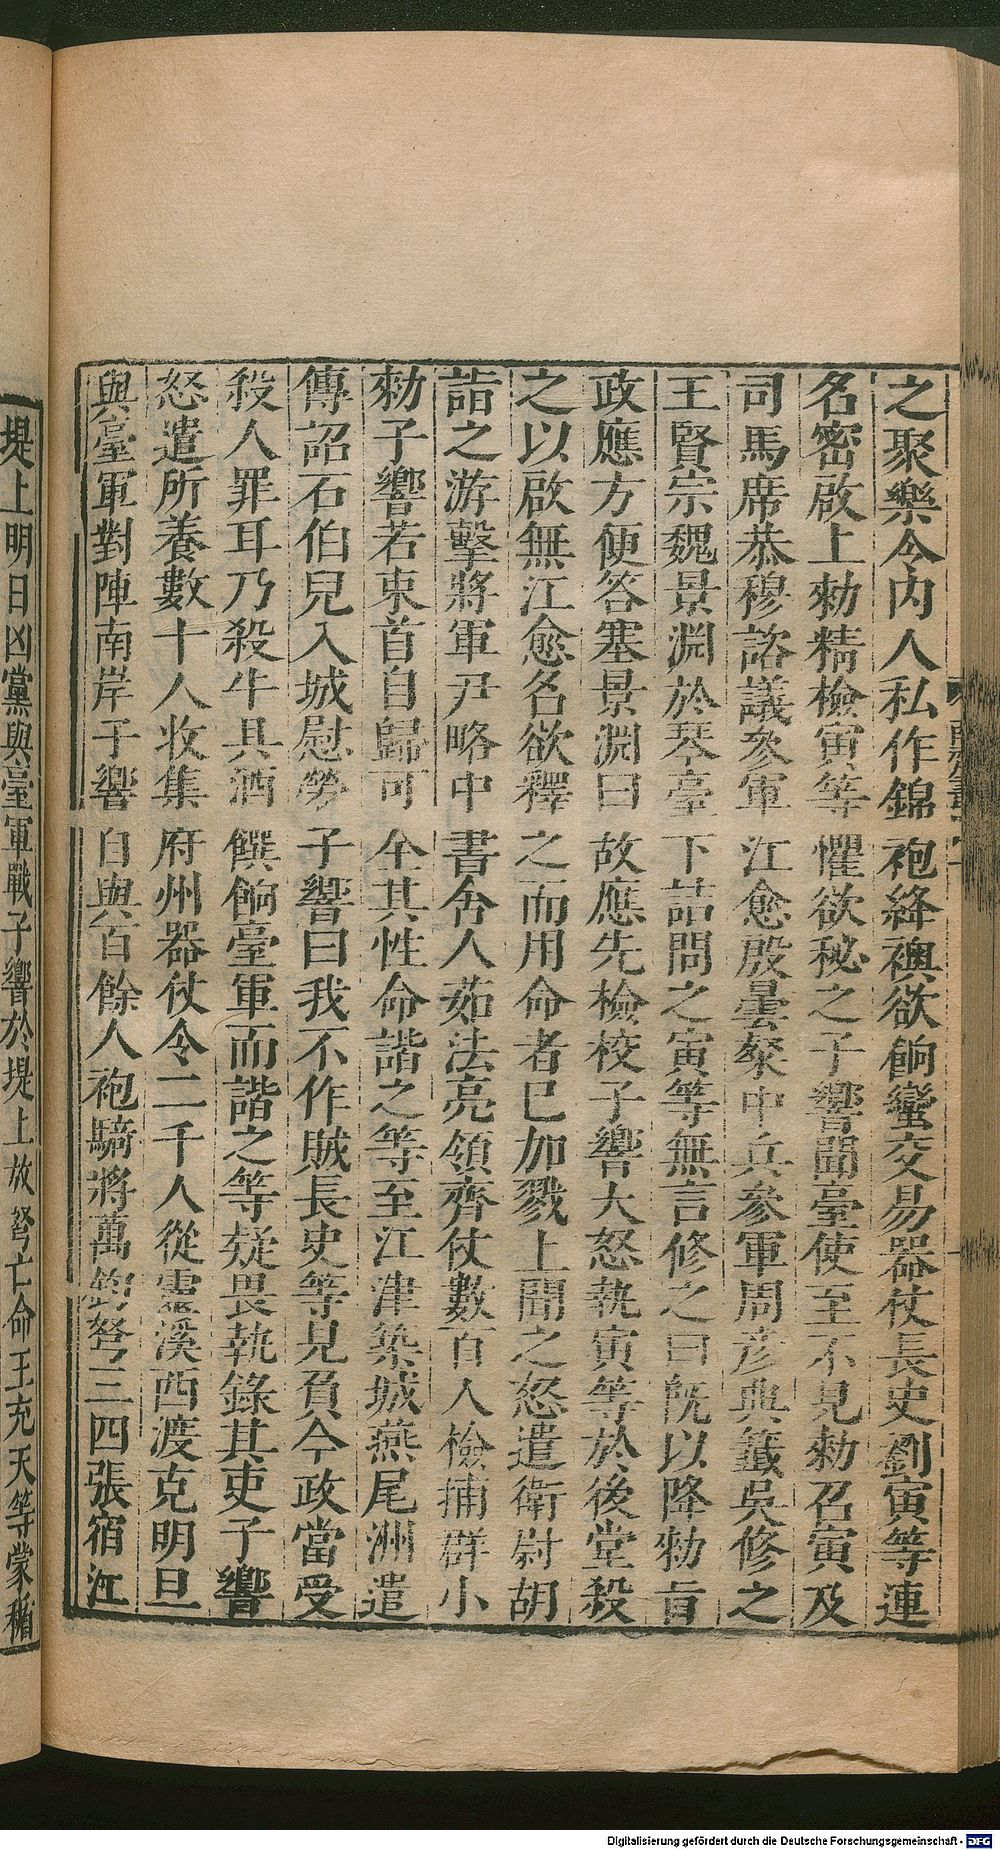 之聚樂令内人私作錦袍絳襖欲餉蠻交易器仗長史劉寅等連
名密啟上勑精檢寅等懼欲秘之子響聞臺使至不見勑召寅及
司馬席恭穆諮議參軍江愈殷曇粲中兵參軍周彦典籤吳修之
王賢宗魏景淵於琴臺下詰問之寅等無言修之曰旣以降勑旨
政應方便答塞景淵曰故應先檢校子響大怒執寅等於後堂殺
之以啟無江愈名欲釋之而用命者巳加戮上聞之怒遣衛尉胡
諧之游擊將軍尹略中書舍人茹法亮領齊仗數百人檢捕群小
勑子響若束首自歸可全其性命諧之等至江津築城燕尾洲遣
傳詔石伯兒入城慰勞子響曰我不作賊長史等見負今政當受
殺人罪耳乃殺牛具酒饌餉臺軍而諧之等疑畏執錄其吏子響
怒遣所養數十人收集府州器仗令二千人從靈溪西渡克明旦
與臺軍對陣南岸子響自與百餘人袍騎將萬鈞弩三四張宿江
堤上明日凶黨與臺軍戰子響於堤上放弩亡命王充天等蒙楯
Digitalisierung gefördert durch die Deutsche Forschungsgemeinschaft - DFG